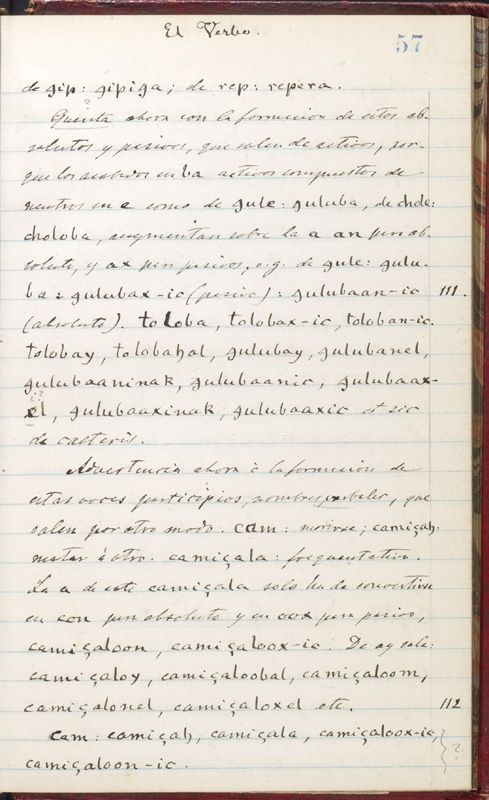 El Verbo.
57
de gip: gipiga; de rep: repera.
?
Quenta ahora con la formacion de estos ab-
solutos y pasivos, que salen de activos, por-
que los acabados en ba activos compuestos de
neutros en e como de gule: guluba, de chole:
choloba, augmentan sobre la a an para ab-
soluto, y ax para pasivos, v.g. de gule: gulu-
ba: gulubax-ic (pasivo): gulubaan-ic 111.
(absoluto). toloba, tolobax-ic, toloban-ic.
tolobay, tolobahal, gulubay, gulubanel,
gulubaaninak, gulubaanic, gulubaax-
i?
el, gulubaaxinak, gulubaaxic et sic
de caeteris.
Advertencia ahora à la formacion de
estas voces participios, nombres verbales, que
salen por otro modo. cam: morirse; camiçah:
matar à otro. camiçala: frequentativo.
La a de este camiçala solo ha de convertirse
en oon para absoluto y en oox para pasivo,
camiçaloon, camiçaloox-ic. De ay sale:
camiçaloy, camiçaloobal, camiçaloom,
camiçalonel, camiçaloxel etc. 112
Cam: camiçah, camiçala, camiçaloox-ic,
camiçaloon-ic. ?